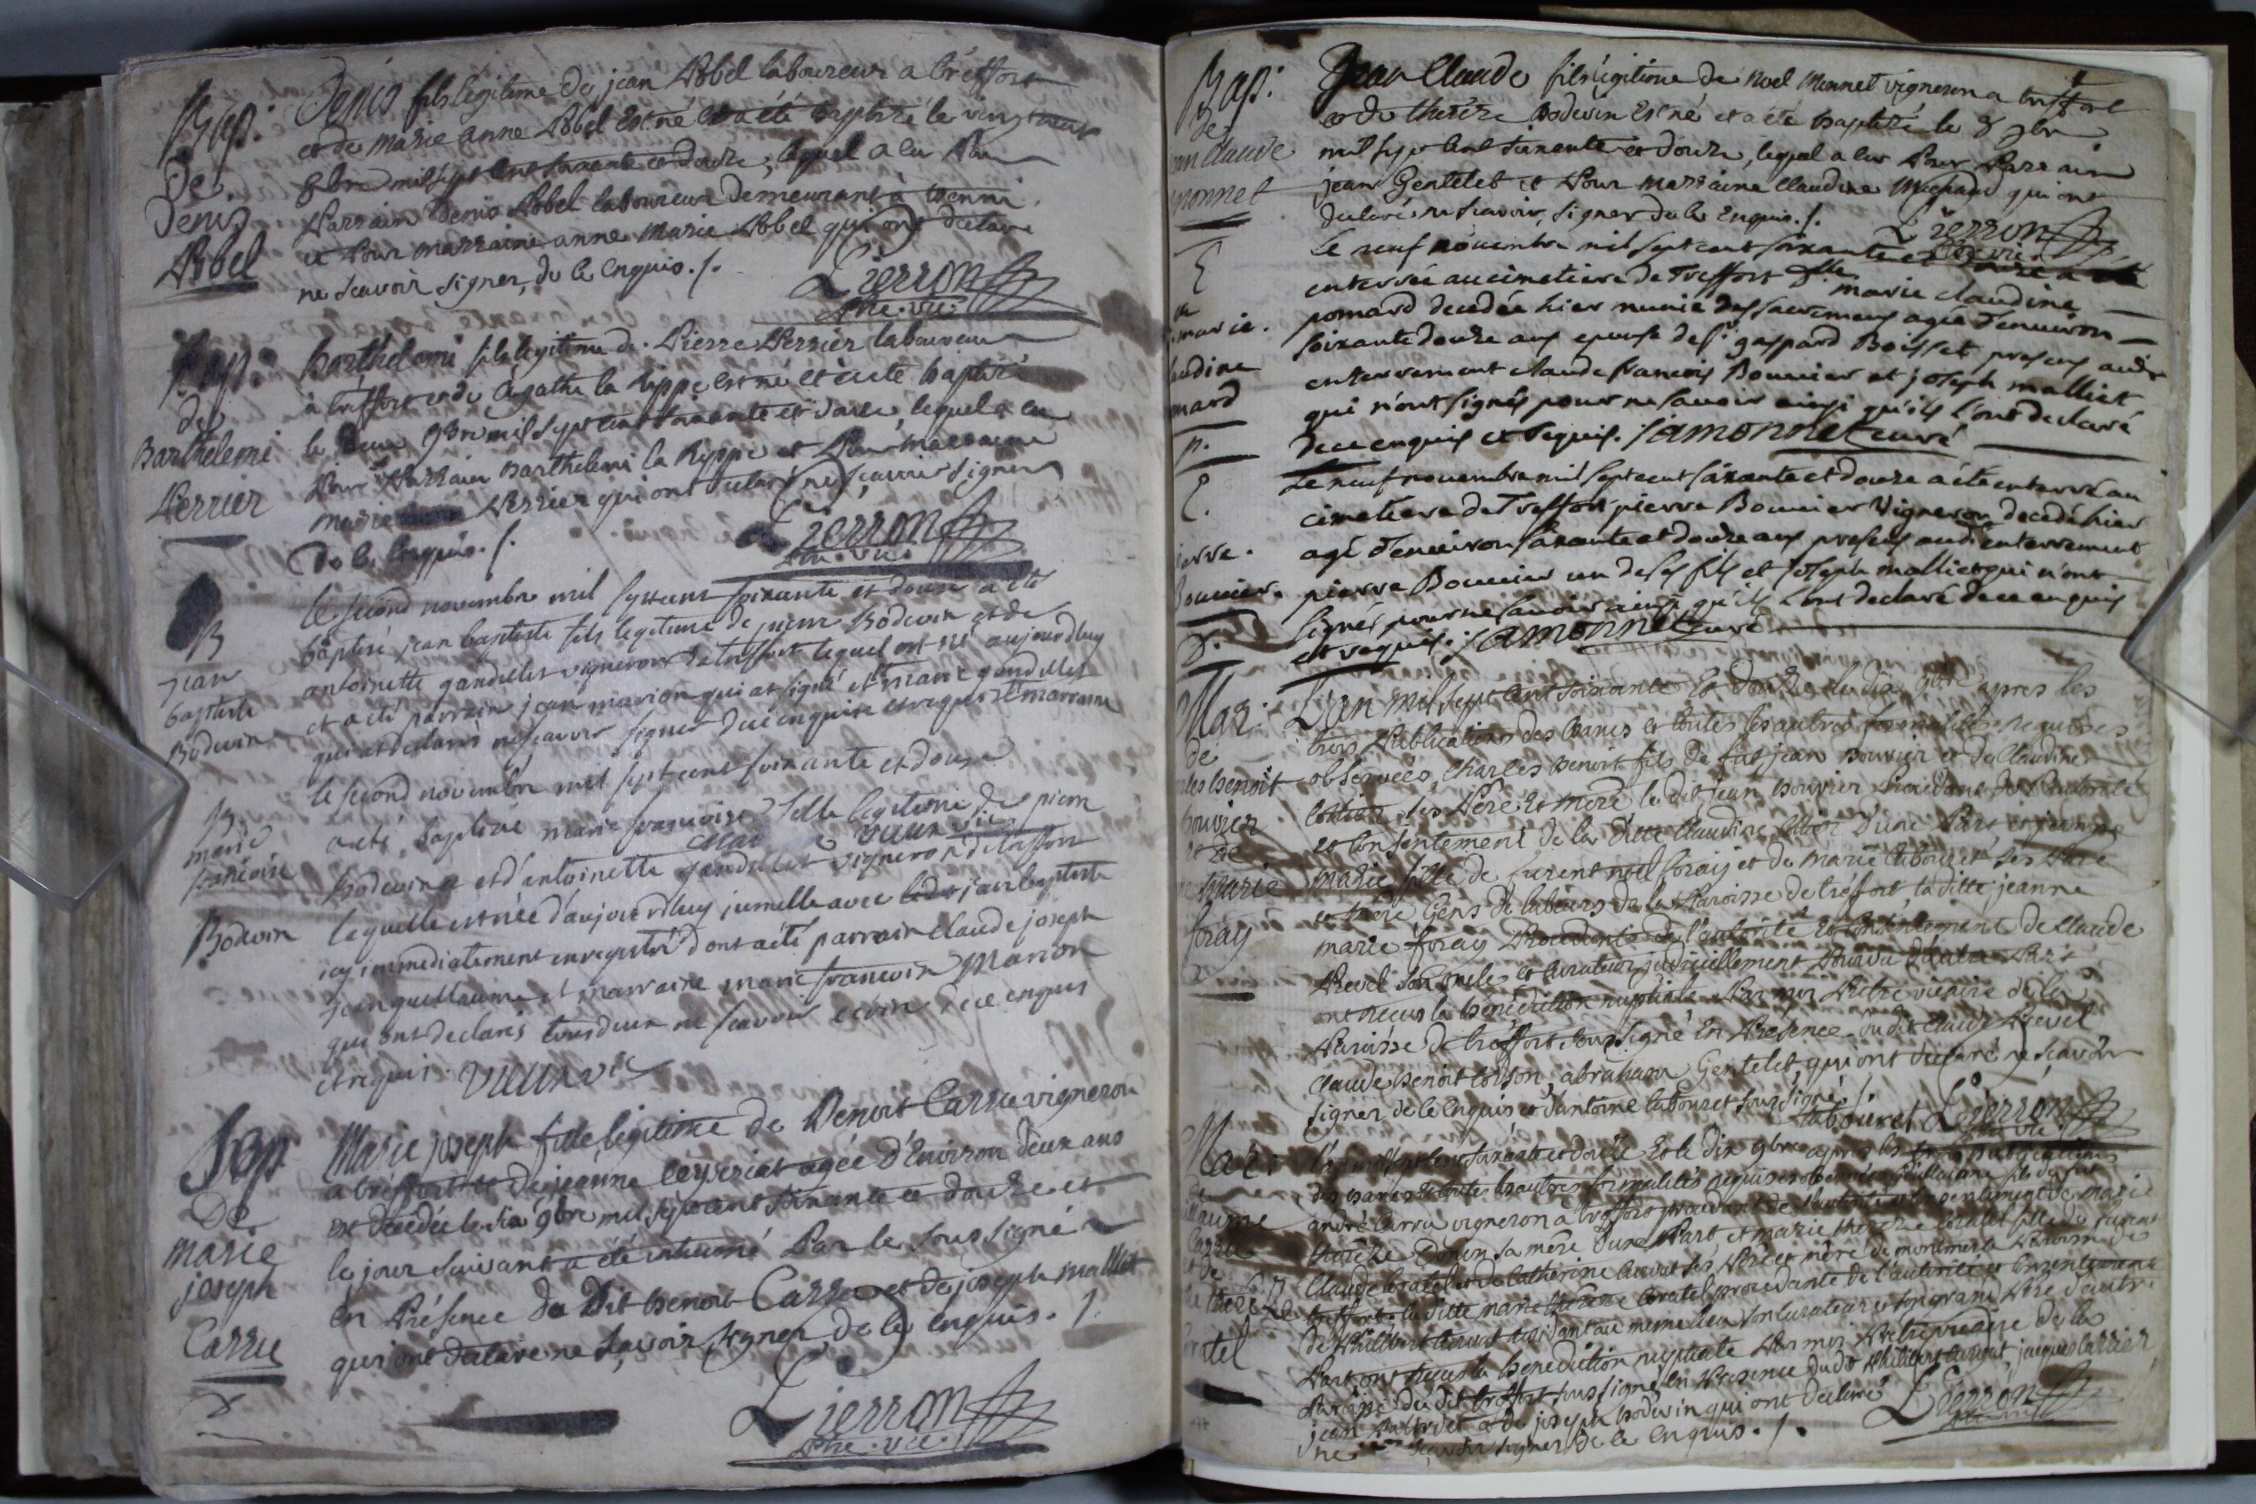 Bap:
De
Denis
Pobel
Denis fils legitime de jean Pobel laboureur a treffort
et de Marie anne Pobel est né et a été baptisé le vingt neuf
8bre mil sept cent soixante et douze, lequel a eu Pour
Parrain Denis Pobel laboureur demeurant à
et Pour marraine anne Marie Pobel qui ont declaré
ne scavoir signer, de ce Enquis ./.
Pierron
ptre. vic.
Bap:
de
Barthelemi
Perrier
Barthelemi fils legitime de Pierre Perrier laboureur
à treffort et de Agathe la Rippe est né et a été baptisé
le deux 9bre mil sept cent soixante et douze, lequel a eu
Pour Parrain Barthelemi la Rippe et Pour Marraine
marie Perrier qui ont declaré ne scavoir signer
de ce Enquis ./.
Pierron
ptre. vic.
B
jean
baptiste
Bodevin
le second novembre mil sept cent soixante et douze a été
baptisé jean baptiste fils legitime de pierre Bodevin et de
antoinette gandillet vignerons de treffort lequel est né aujourdhuy
et a été parrain jean marion qui at signé et marie gandillet
qui at declaré ne scavoir signer de ce enquise et requise marraine
B.
marie
francoise
Bodevin
le second novembre mil sept cent soixante et douze
a eté baptisé marie francoise fille legitime de pierre
Bodevin et d'antoinette gandillet vigneron de treffort
laquelle est née d'aujourdhuy jumelle avec ledt jean baptiste
icy immediatement enregistré dont a été parrain Claude joseph
jean guillaume et marraine marie francoise Marion
qui ont declarés tous deux ne scavoir ecrire de ce enquis
et requis. vuiux vic
Sep
De
Marie
joseph
Carru
Marie joseph fille legitime de Benoit Carru vigneron
a treffort et de jeanne Ceyzeriat agée d'Environ deux ans
est decedée le six 9bre mil sept cent soixante et douze et
le jour suivant a été inhumé Par le sous signé
en Présence du Dit benoit Carru et de joseph mallict
qui ont declaré ne scavoir signer, de ce enquis ./.
Pierron
ptre. vic.
Bap:
de
jean Claude
monnet
Jean Claude fils legitime de Noel Monnet vigneron a treffort
et de therèze Bodevin est né et a été baptisé le 8 9bre
mil sept cent soixante et douze, lequel a eu Pour Parrain
jean Gentelet et Pour marraine Claudine Michaud qui ont
declaré ne scavoir signer de ce Enquis ./.
Pierron
ptre vic.
E
marie
claudine
pomard
p.
le neuf novembre mil sept cent soixante et douze a été
enterrée au cimetiere de Treffort dlle marie claudine
pomard decedée hier munie des sacremens agée d'environ
soixante douze ans epouse de sr gaspard Boisset presens audt
enterrement claude francois Bouvier et joseph malliet
qui n'ont signés pour ne savoir ainsi qu'ils l'ont declaré
de ce enquis et requis. jamonnet curé
E.
pierre
Bouvier
Le neuf novembre mil sept cent soixante et douze a été enterré au
cimetiere de Treffort pierre Bouvier vigneron decedé hier
agé d'environ soixante et douze ans presens audt enterrement
pierre Bouvier un de ses fils et joseph malliet qui n'ont
signés pour ne savoir ainsi qu'ils l'ont declaré de ce enquis
et requis. jamonnet curé
Mar:
de
Charles benoit
bouvier
et de
jeanne Marie
foray
L'an mil sept cent soixante et douze le dix 9bre apres les
trois Publications des bancs et toutes les autres formalités requises
observées, Charles benoit fils de fut jean Bouvier et de Claudine
ses Père et mère le dit jean bouvier Procedant de l'autorité
et consentement de la ditte Claudine d'une Part et jeanne
marie fille de furent noel foray et de marie labouret ses Père
et mère Gens de labeurs de la Paroisse de tréfort, la ditte jeanne
marie foray Procedante de l'autorité et consentement de Claude
Prevel son oncle et curateur judiciellement Pourvu d'autre Part
ont reçus la bénédiction nuptiale Par moi Prêtre vicaire de la
Paroisse de treffort sous signé en Présence du dit Claude Prevel
Claude benoit, abraham Gentelet, qui ont declaré ne scavoir
signer de ce Enquis et d'antoine labouret sous signé ./.
labouret Pierron
ptre vic.
Mar:
de
Guillaume
Carru
et de
Marie thereze
Coratel
L'an mil sept cent soixante et douze et le dix 9bre apres les trois Publications
des bancs et toutes les autres formalités requises observées Guillaume fils de fut
andré Carru vigneron à treffort procedant de l'autorité et consentement de Marie
thereze sa mère d'une Part et marie thereze Coratel fille de furent
Claude Coratel et de Catherine ses Père et mère de montmerle Paroisse de
treffort la ditte marie thereze Coratel procedante de l'autorité et consentement
de Philibert residant au meme lieu son curateur et son grand Père d'autre
Part ont reçus la benediction nuptiale Par moi Prêtre vicaire de la
Paroisse du dit treffort sous signé en Présence du dt Philibert, jacques
jean et de joseph bodevin qui ont declaré
ne scavoir signer de ce enquis ./.
Pierron
ptre vic